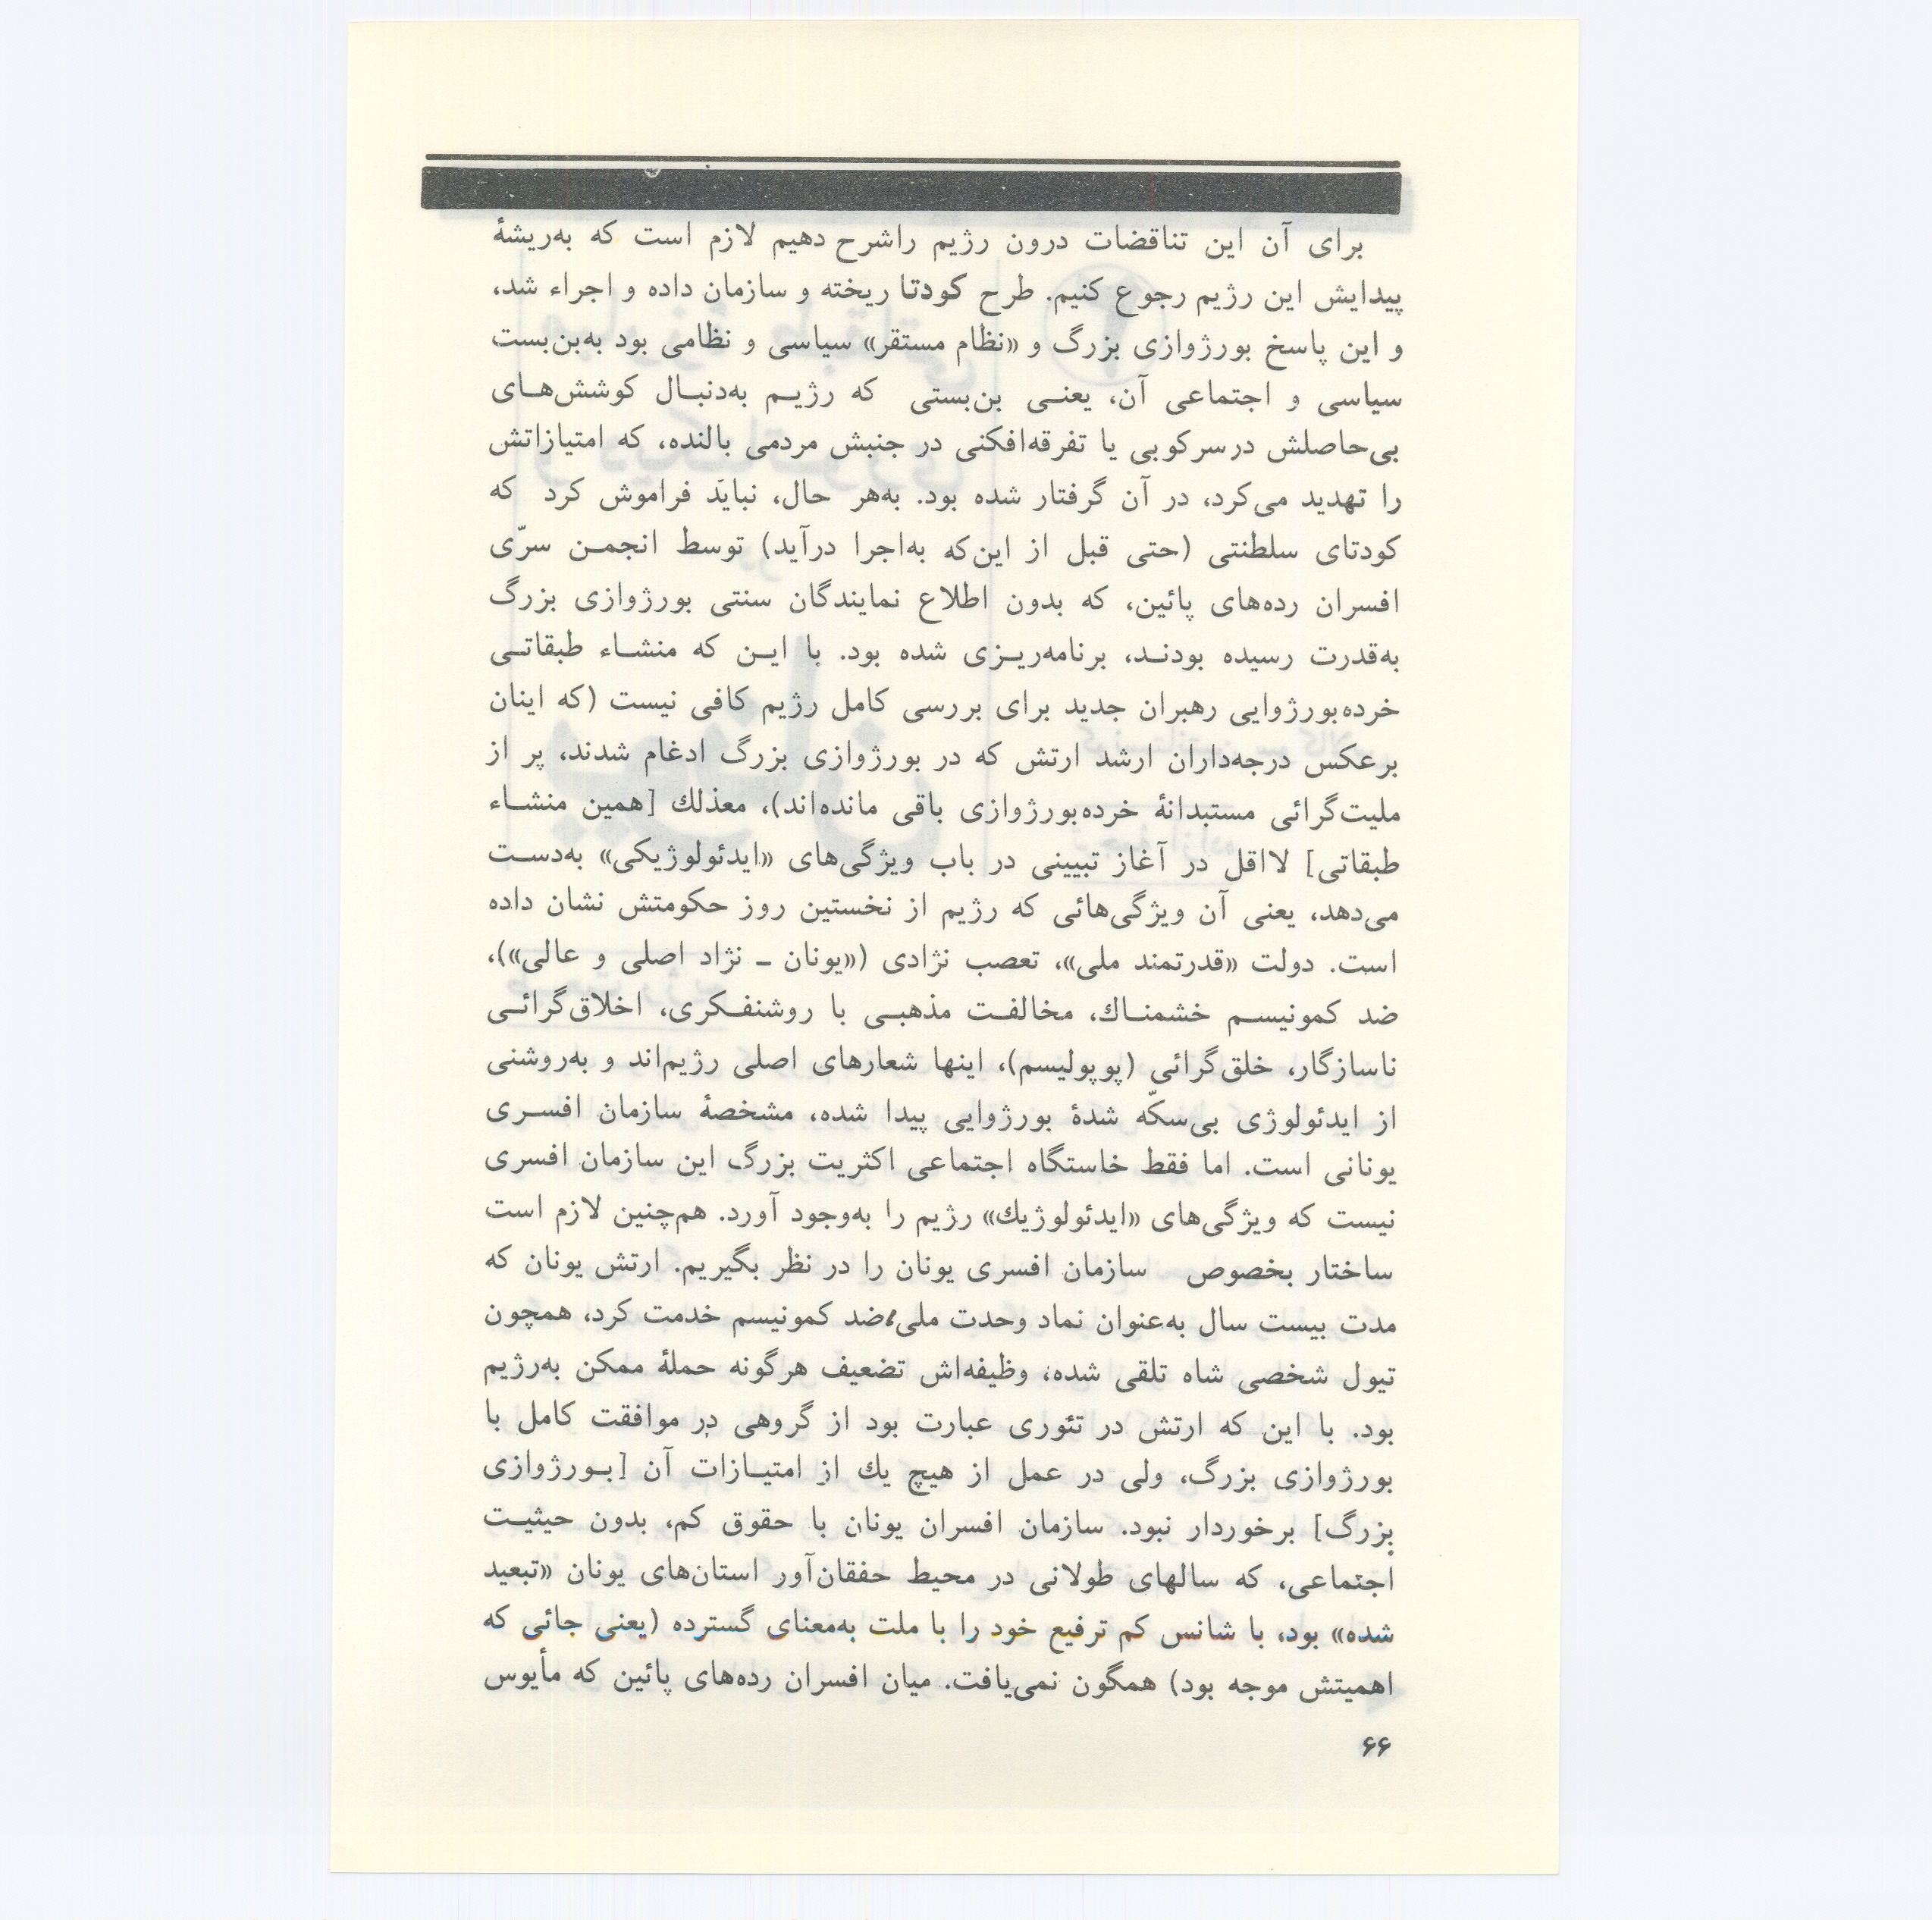 برای آن این تناقضات درون رژیم راشرح دهیم لازم است که به‌ریشهٔ
پیدایش این رژیم رجوع کنیم. طرح کودتا ریخته و سازمان داده و اجراء شد،
و این پاسخ بورژوازی بزرگ و «نظام مستقر» سیاسی و نظامی بود به‌بن‌بست
سیاسی و اجتماعی آن، یعنی بن‌بستی که رژیم به‌دنبال کوشش‌های
بی‌حاصلش درسرکوبی یا تفرقه‌افکنی در جنبش مردمی بالنده، که امتیازاتش
را تهدید می‌کرد، در آن گرفتار شده بود. به‌هر حال، نباید فراموش کرد که
کودتای سلطنتی (حتی قبل از این‌که به‌اجرا درآید) توسط انجمن سرّی
افسران رده‌های پائین، که بدون اطلاع نمایندگان سنتی بورژوازی بزرگ
به‌قدرت رسیده بودند، برنامه‌ریزی شده بود. با این که منشاء طبقاتی
خرده‌بورژوایی رهبران جدید برای بررسی کامل رژیم کافی نیست (که اینان
برعکس درجه‌داران ارشد ارتش که در بورژوازی بزرگ ادغام شدند، پر از
ملیت‌گرائی مستبدانهٔ خرده‌بورژوازی باقی مانده‌اند)، معذلك [همین منشاء
طبقاتی] لااقل در آغاز تبیینی در باب ویژگی‌های «ایدئولوژیکی» به‌دست
می‌دهد، یعنی آن ویژگی‌هائی که رژیم از نخستین روز حکومتش نشان داده
است. دولت «قدرتمند ملی»، تعصب نژادی («یونان ـ نژاد اصلی و عالی»)،
ضد کمونیسم خشمناك، مخالفت مذهبی با روشنفکری، اخلاق‌گرائی
ناسازگار، خلق‌گرائی (پوپولیسم)، اینها شعارهای اصلی رژیم‌اند و به‌روشنی
از ایدئولوژی بی‌سکّه شدهٔ بورژوایی پیدا شده، مشخصهٔ سازمان افسری
یونانی است. اما فقط خاستگاه اجتماعی اکثریت بزرگ این سازمان افسری
نیست که ویژگی‌های «ایدئولوژیك» رژیم را به‌وجود آورد. هم‌چنین لازم است
ساختار بخصوص سازمان افسری یونان را در نظر بگیریم. ارتش یونان که
مدت بیست سال به‌عنوان نماد وحدت ملی، ضد کمونیسم خدمت کرد، همچون
تیول شخصی شاه تلقی شده، وظیفه‌اش تضعیف هرگونه حملهٔ ممکن به‌رژیم
بود. با این که ارتش در تئوری عبارت بود از گروهی در موافقت کامل با
بورژوازی بزرگ، ولی در عمل از هیچ یك از امتیازات آن [بورژوازی
بزرگ] برخوردار نبود. سازمان افسران یونان با حقوق کم، بدون حیثیت
اجتماعی، که سالهای طولانی در محیط حفقان‌آور استان‌های یونان «تبعید
شده» بود، با شانس کم ترفیع خود را با ملت به‌معنای گسترده (یعنی جائی که
اهمیتش موجه بود) همگون نمی‌یافت. میان افسران رده‌های پائین که مأیوس
۶۶